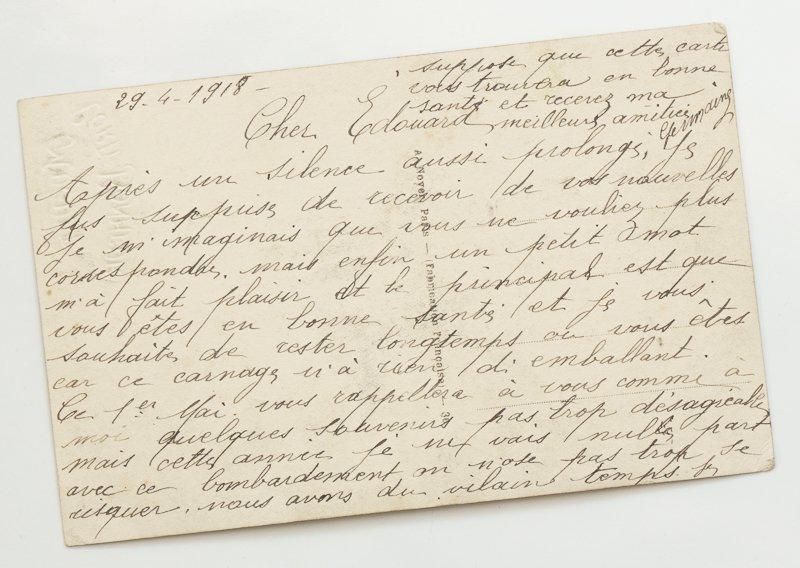 29-4-1918-
Cher Edouard
Après un silence aussi prolongé, je
fus surprise de recevoir de vos nouvelles
je m'imaginais que vous ne vouliez plus
correspondre. mais enfin un petit mot
m'a fait plaisir et le principal est que
vous êtes en bonne santé et je vous
souhaite de rester longtemps où vous êtes
car ce carnage n'a rien d'emballant.
Ce 1er Mai vous rappellera à vous comme à
moi quelques souvenirs pas trop désagréables
mais cette année je ne vais nulle part
avec ce bombardement on n'ose pas trop se
risquer. nous avons du vilain temps. je
suppose que cette carte
vous trouvera en bonne
santé et recevez ma
meilleure amitié
Germaine
A. Noyer Paris — Fabrication Française